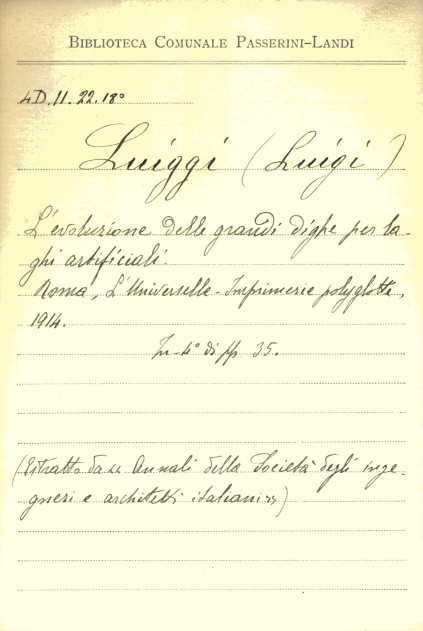 BIBLIOTECA COMUNALE PASSERINI-LANDI
4D.11.22.18°
Luiggi (Luigi)
L'evoluzione delle grandi dighe per la-
ghi artificiali.
Roma, L'Universelle-Imprimerie polyglotte,
1914.
In-4° di pp 35.
(Estratto da «Annali della Società degli inge-
gneri e architetti italiani»)